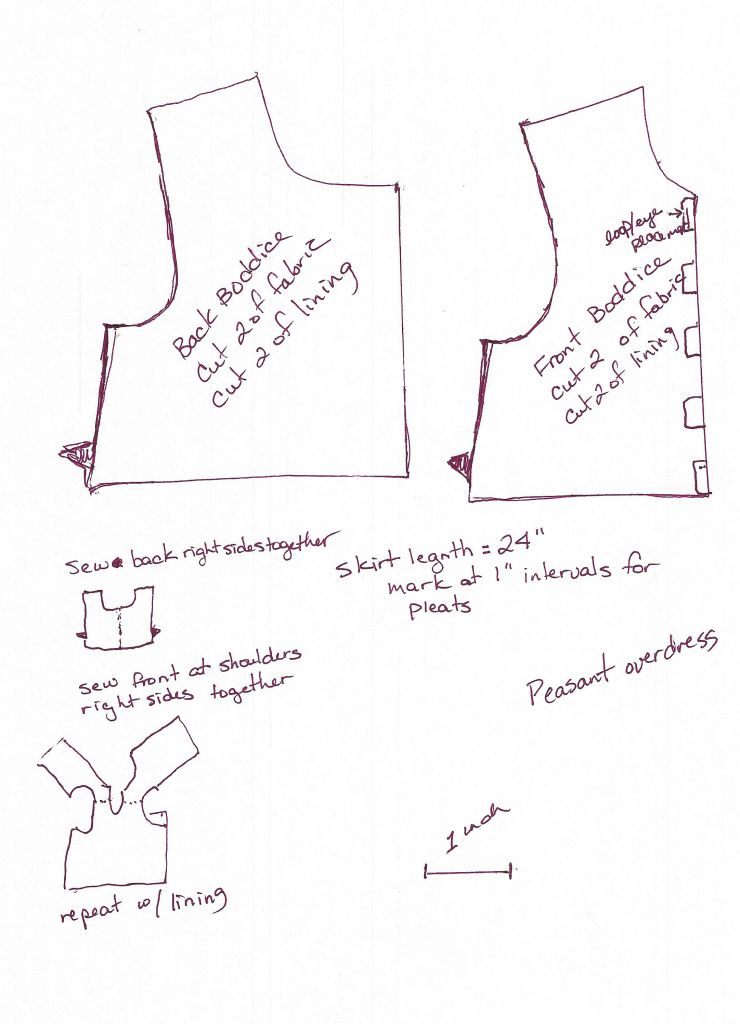 Back Boddice
cut 2 of fabric
cut 2 of lining
loop/eye
placement
Front Boddice
cut 2 of fabric
cut 2 of lining
sew back right sides together
skirt legnth = 24"
mark at 1" intervals for
pleats
sew front at shoulders
right sides together
Peasant overdress
1 inch
repeat w/ lining